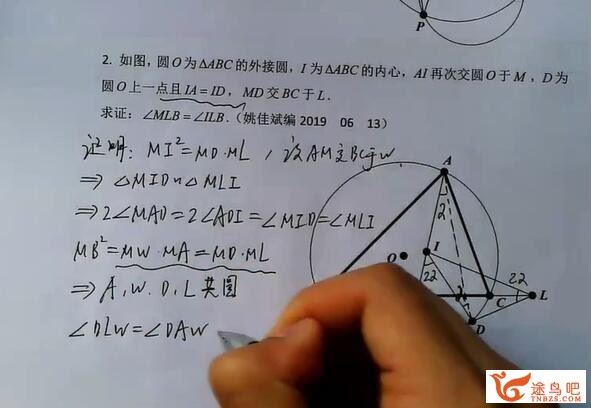 P
2. 如图, 圆O为ΔABC的外接圆, I为ΔABC的内心, AI再次交圆O于M, D为
圆O上一点且IA=ID, MD交BC于L.
求证: ∠MLB=∠ILB.(姚佳斌编 2019 06 13)
证明: MI²=MD·ML, 设AM交BC于W.
⇒ △MID∽△MLI
⇒ 2∠MAD=2∠ADI=∠MID=∠MLI
MB²=MW·MA=MD·ML
⇒ A, W. D, L 共圆
∠DLW=∠DAW
A
2
I
O
22
22
C
L
D
途鸟吧
TNBZS.COM